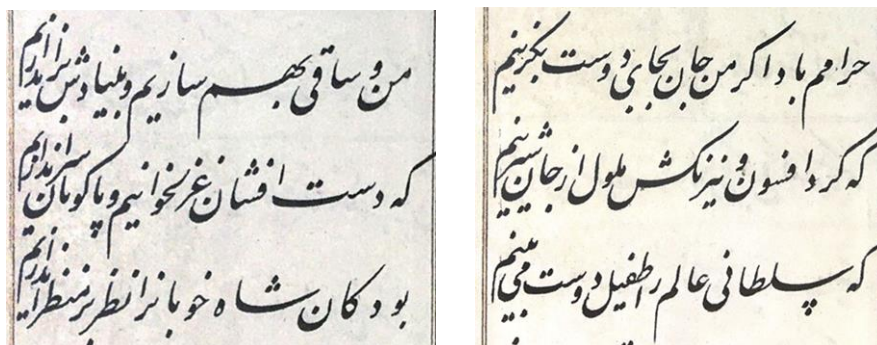 حرامم باد اکر من جان بجای دوست بکزینم
که کرد افسون و نیرنکش ملول از جان شیرینم
که سلطانی عالم را طفیل دوست می بینم
من و ساقی بهم سازیم و بنیادش براندازیم
که دست افشان غزلخوانیم و پاکوبان سراندازیم
بود کان شاه خوبانرا نظر بر منظر اندازیم